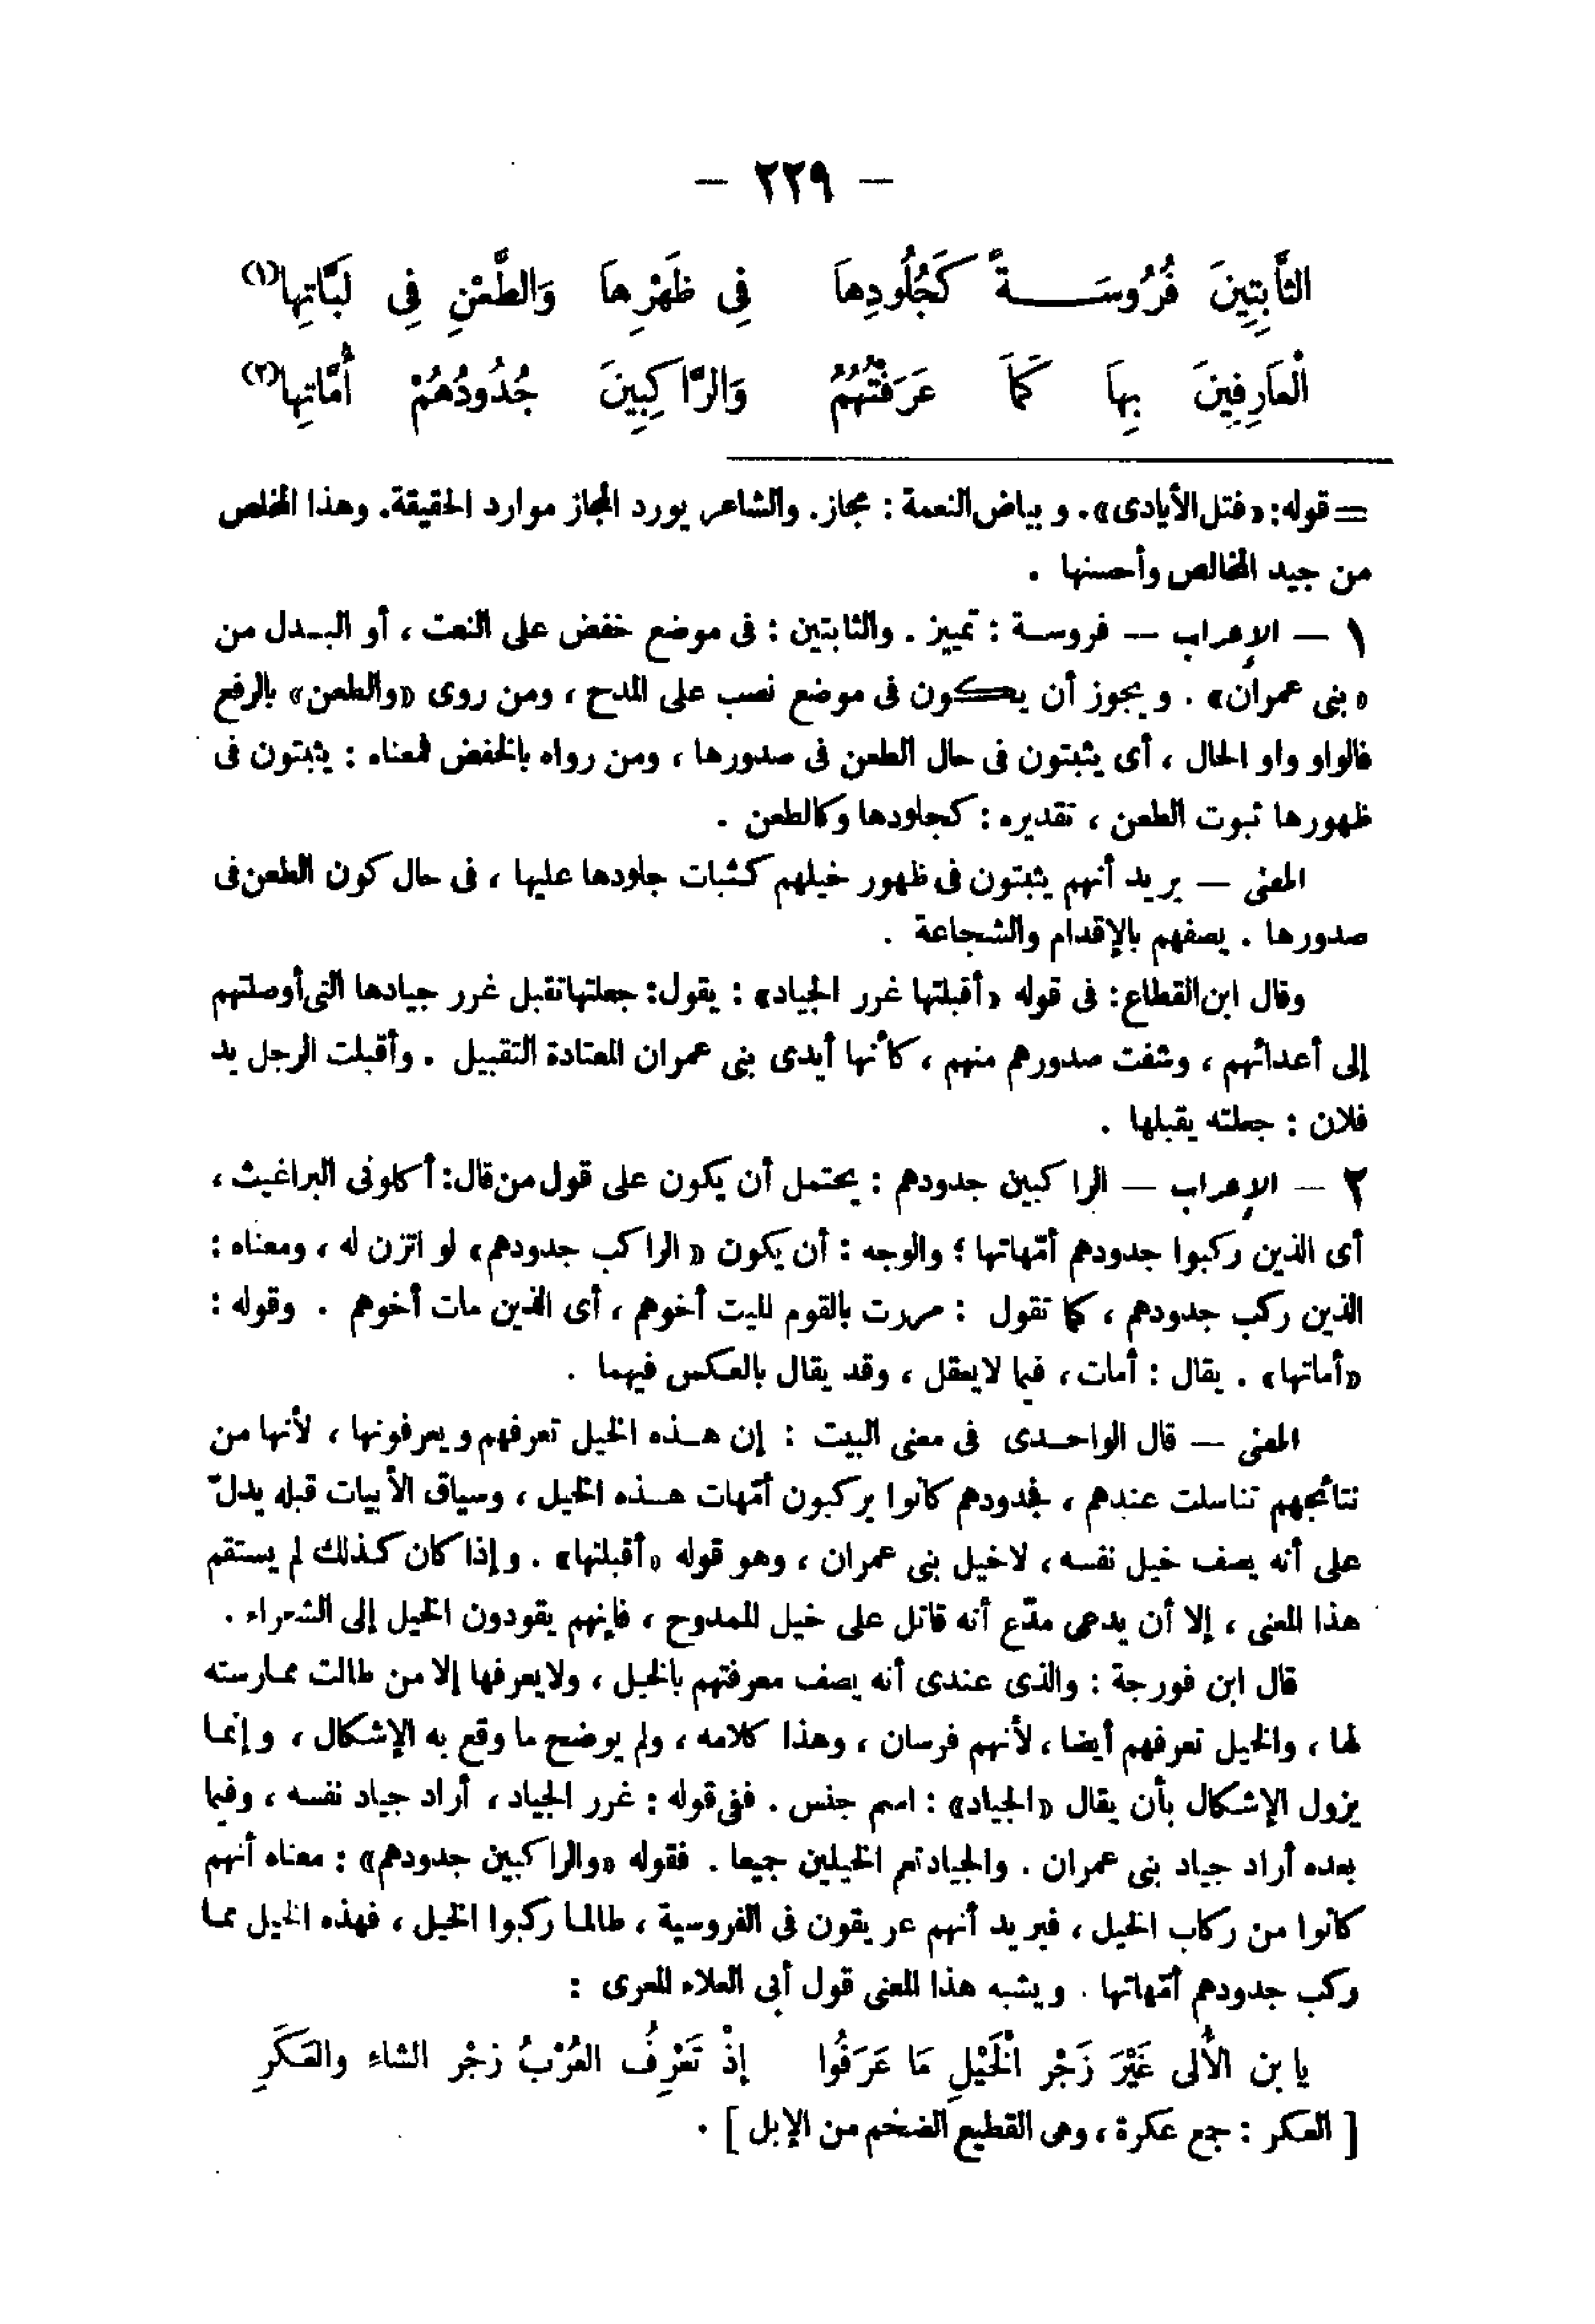 — ٢٢٩ —
الثَّابِتِينَ فُرُوسَةً كَجُلُودِهاَ فِى ظَهْرِهاَ وَالطَّعْنِ فِى لَبَّاتِها(١)
الْعاَرِفِينَ بِهاَ كَمَا عَرَفَتْهُمُ وَالرَّاكِبِينَ جُدُودُهُمْ أُمَّاتِها(٢)
= قوله: «فتل الأيادى». وبياض النعمة : مجاز. والشاعر يورد المجاز موارد الحقيقة. وهذا المخلص
من جيد المخالص وأحسنها .
١ — الإعراب — فروسة : تمييز . والثابتين : فى موضع خفض على النعت ، أو البدل من
«بنى عمران» . ويجوز أن يكون فى موضع نصب على المدح ، ومن روى «والطعن» بالرفع
فالواو واو الحال ، أى يثبتون فى حال الطعن فى صدورها ، ومن رواه بالخفض فمعناه : يثبتون فى
ظهورها ثبوت الطعن ، تقديره : كجلودها وكالطعن .
المعنى — يريد أنهم يثبتون فى ظهور خيلهم كثبات جلودها عليها ، فى حال كون الطعن فى
صدورها . يصفهم بالإقدام والشجاعة .
وقال ابن القطاع: فى قوله «أقبلتها غرر الجياد» : يقول: جعلتها تقبل غرر جيادها التى أوصلتهم
إلى أعدائهم ، وشفت صدورهم منهم ، كأنها أيدى بنى عمران المعتادة التقبيل . وأقبلت الرجل يد
فلان : جعلته يقبلها .
٢ — الإعراب — الراكبين جدودهم : يحتمل أن يكون على قول من قال: أكلونى البراغيث ،
أى الذين ركبوا جدودهم أمّهاتها ؛ والوجه : أن يكون «الراكب جدودهم» لو اتزن له ، ومعناه :
الذين ركب جدودهم ، كما تقول : مررت بالقوم الميت أخوهم ، أى الذين مات أخوهم . وقوله :
«أماتها» . يقال : أمات ، فيما لايعقل ، وقد يقال بالعكس فيهما .
المعنى — قال الواحدى فى معنى البيت : إن هذه الخيل تعرفهم ويعرفونها ، لأنها من
نتائجهم تناسلت عندهم ، فجدودهم كانوا يركبون أمّهات هذه الخيل ، وسياق الأبيات قبله يدلّ
على أنه يصف خيل نفسه ، لاخيل بنى عمران ، وهو قوله «أقبلتها» . وإذا كان كذلك لم يستقم
هذا المعنى ، إلا أن يدعى مدّع أنه قاتل على خيل الممدوح ، فإنهم يقودون الخيل إلى الشعراء .
قال ابن فورجة : والذى عندى أنه يصف معرفتهم بالخيل ، ولايعرفها إلا من طالت ممارسته
لها ، والخيل تعرفهم أيضا ، لأنهم فرسان ، وهذا كلامه ، ولم يوضح ما وقع به الإشكال ، وإنما
يزول الإشكال بأن يقال «الجياد» : اسم جنس . ففى قوله : غرر الجياد ، أراد جياد نفسه ، وفيما
بعده أراد جياد بنى عمران . والجياد تعم الخيلين جميعا . فقوله «والراكبين جدودهم» : معناه أنهم
كانوا من ركاب الخيل ، فيريد أنهم عريقون فى الفروسية ، طالما ركبوا الخيل ، فهذه الخيل مما
ركب جدودهم أمّهاتها . ويشبه هذا المعنى قول أبى العلاء المعرى :
يا بن الأُلى غَيْرَ زَجْرِ الْخَيْلِ مَا عَرَفُوا إذْ تَعْرِفُ العُرْبُ زجْر الشاءِ والعَكَرِ
[ العكر : جمع عكرة ، وهى القطيع الضخم من الإبل ] .